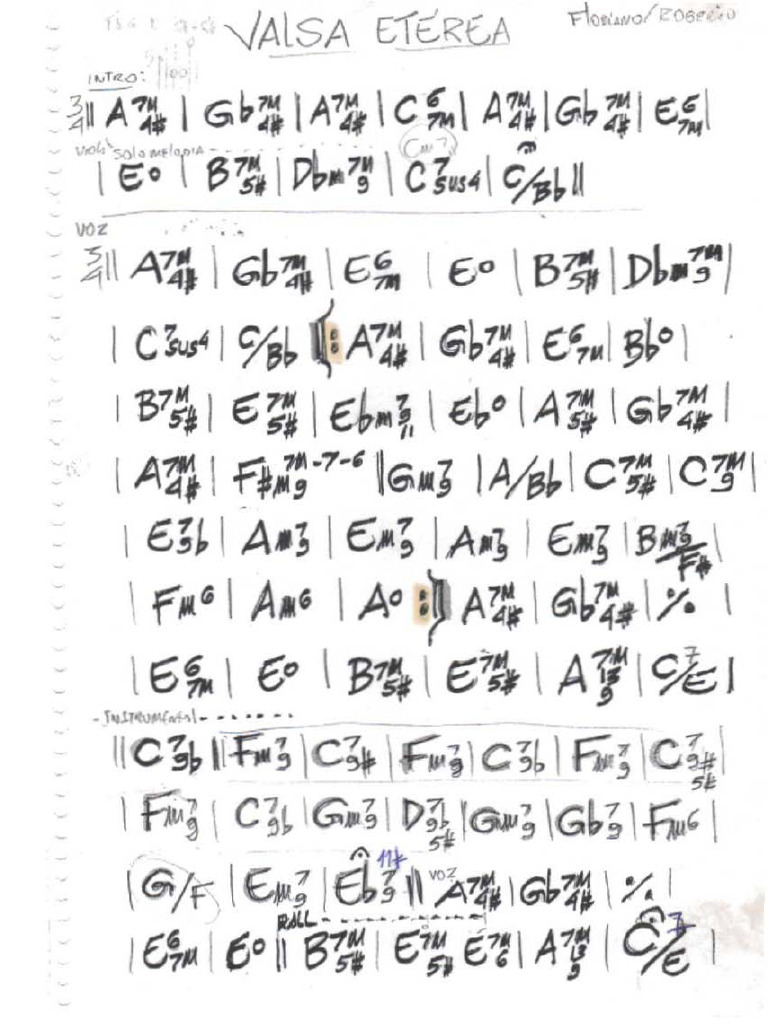 VALSA ETÉREA Floriano/ROGÉRIO
INTRO:
3/4 || A7M 4# | Gb7M 4# | A7M 4# | C6 7M | A7M 4# | Gb7M 4# | E6 7M |
SOLO MELODIA Cm7
| Eº | B7M 5# | Dbm7M 9 | C7 sus4 | C/Bb ||
VOZ
3/4 || A7M 4# | Gb7M 4# | E6 7M | Eº | B7M 5# | Dbm7M 9 |
| C7 sus4 | C/Bb ||: A7M 4# | Gb7M 4# | E6 7M | Bbº |
| B7M 5# | E7M 5# | Ebm7 9 11 | Ebº | A7M 5# | Gb7M 4# |
| A7M 4# | F#m7M 9 -7-6 || Gm7 9 | A/Bb | C7M 5# | C7M 9 |
| E7 9b | Am7 9 | Em7 9 | Am7 9 | Em7 9 | Bm7 9/F# |
| Fm6 | Am6 | Aº :|| A7M 4# | Gb7M 4# | ٪ |
| E6 7M | Eº | B7M 5# | E7M 5# | A7M 13 9 | C7/E |
- INSTRUMENTAL - - - - - -
|| C7 9b || Fm7 9 | C7 9# | Fm7 9 | C7 9b | Fm7 9 | C7 9# 5# |
| Fm7 9 | C7 9b | Gm7 9 | D7 9b 5# | Gm7 9 | Gb7 9 | Fm6 |
| G/F | Em7 9 | Eb7 9 11# || VOZ A7M 4# | Gb7M 4# | ٪ |
RALL - - - - - -
| E6 7M | Eº || B7M 5# | E7M 5# E7M 6 | A7M 13 9 | C7/E |